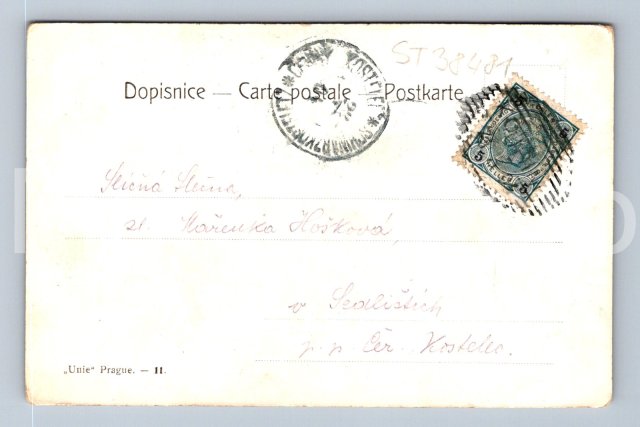 ST 38481
Dopisnice — Carte postale — Postkarte
5 5
Sličná Slečna,
sl. Mařenka Hošková,
v Sedlištích
p. p. Čer. Kostelec.
„Unie“ Prague. — 11.